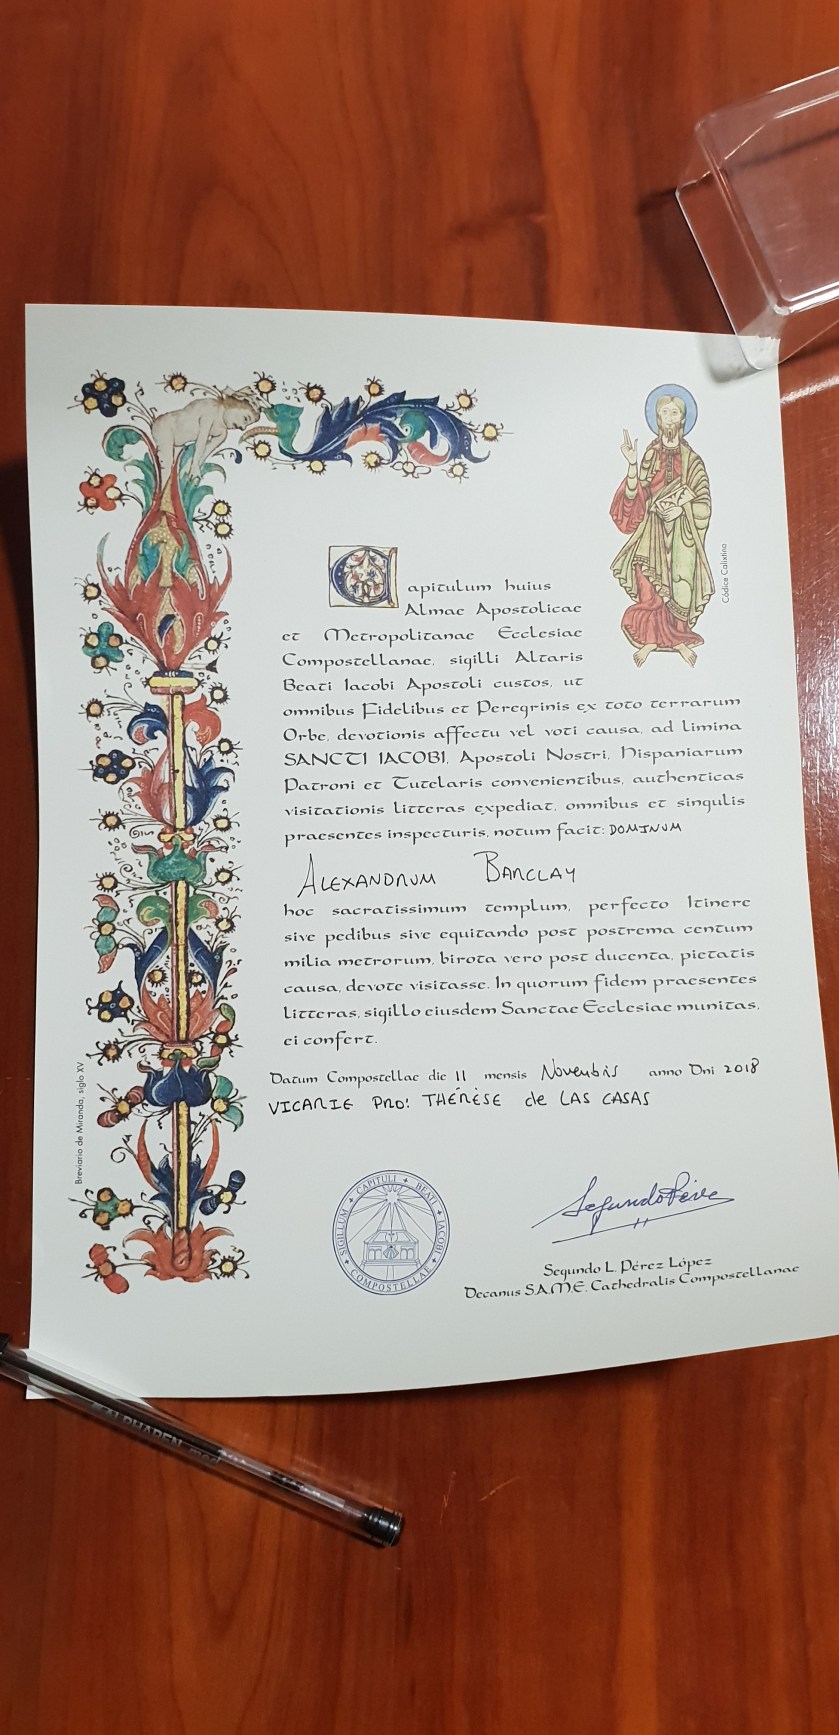 Capitulum huius
Almae Apostolicae
et Metropolitanae Ecclesiae
Compostellanae, sigilli Altaris
Beati Iacobi Apostoli custos, ut
omnibus Fidelibus et Peregrinis ex toto terrarum
Orbe, devotionis affectu vel voti causa, ad limina
SANCTI IACOBI, Apostoli Nostri, Hispaniarum
Patroni et Tutelaris convenientibus, authenticas
visitationis litteras expediat, omnibus et singulis
praesentes inspecturis, notum facit: DOMINUM
ALEXANDRUM BARCLAY
hoc sacratissimum templum, perfecto Itinere
sive pedibus sive equitando post postrema centum
milia metrorum, birota vero post ducenta, pietatis
causa, devote visitasse. In quorum fidem praesentes
litteras, sigillo eiusdem Sanctae Ecclesiae munitas,
ei confert.
Datum Compostellae die 11 mensis Novembris anno Dni 2018
VICARIE PRO: THÉRÈSE de LAS CASAS
SIGILLUM CAPITULI BEATI IACOBI COMPOSTELLAE
Segundo Pérez
Segundo L. Pérez López
Decanus S.A.M.E. Cathedralis Compostellanae
Códice Calixtino
Breviario de Miranda, siglo XV
ALPHAPEN